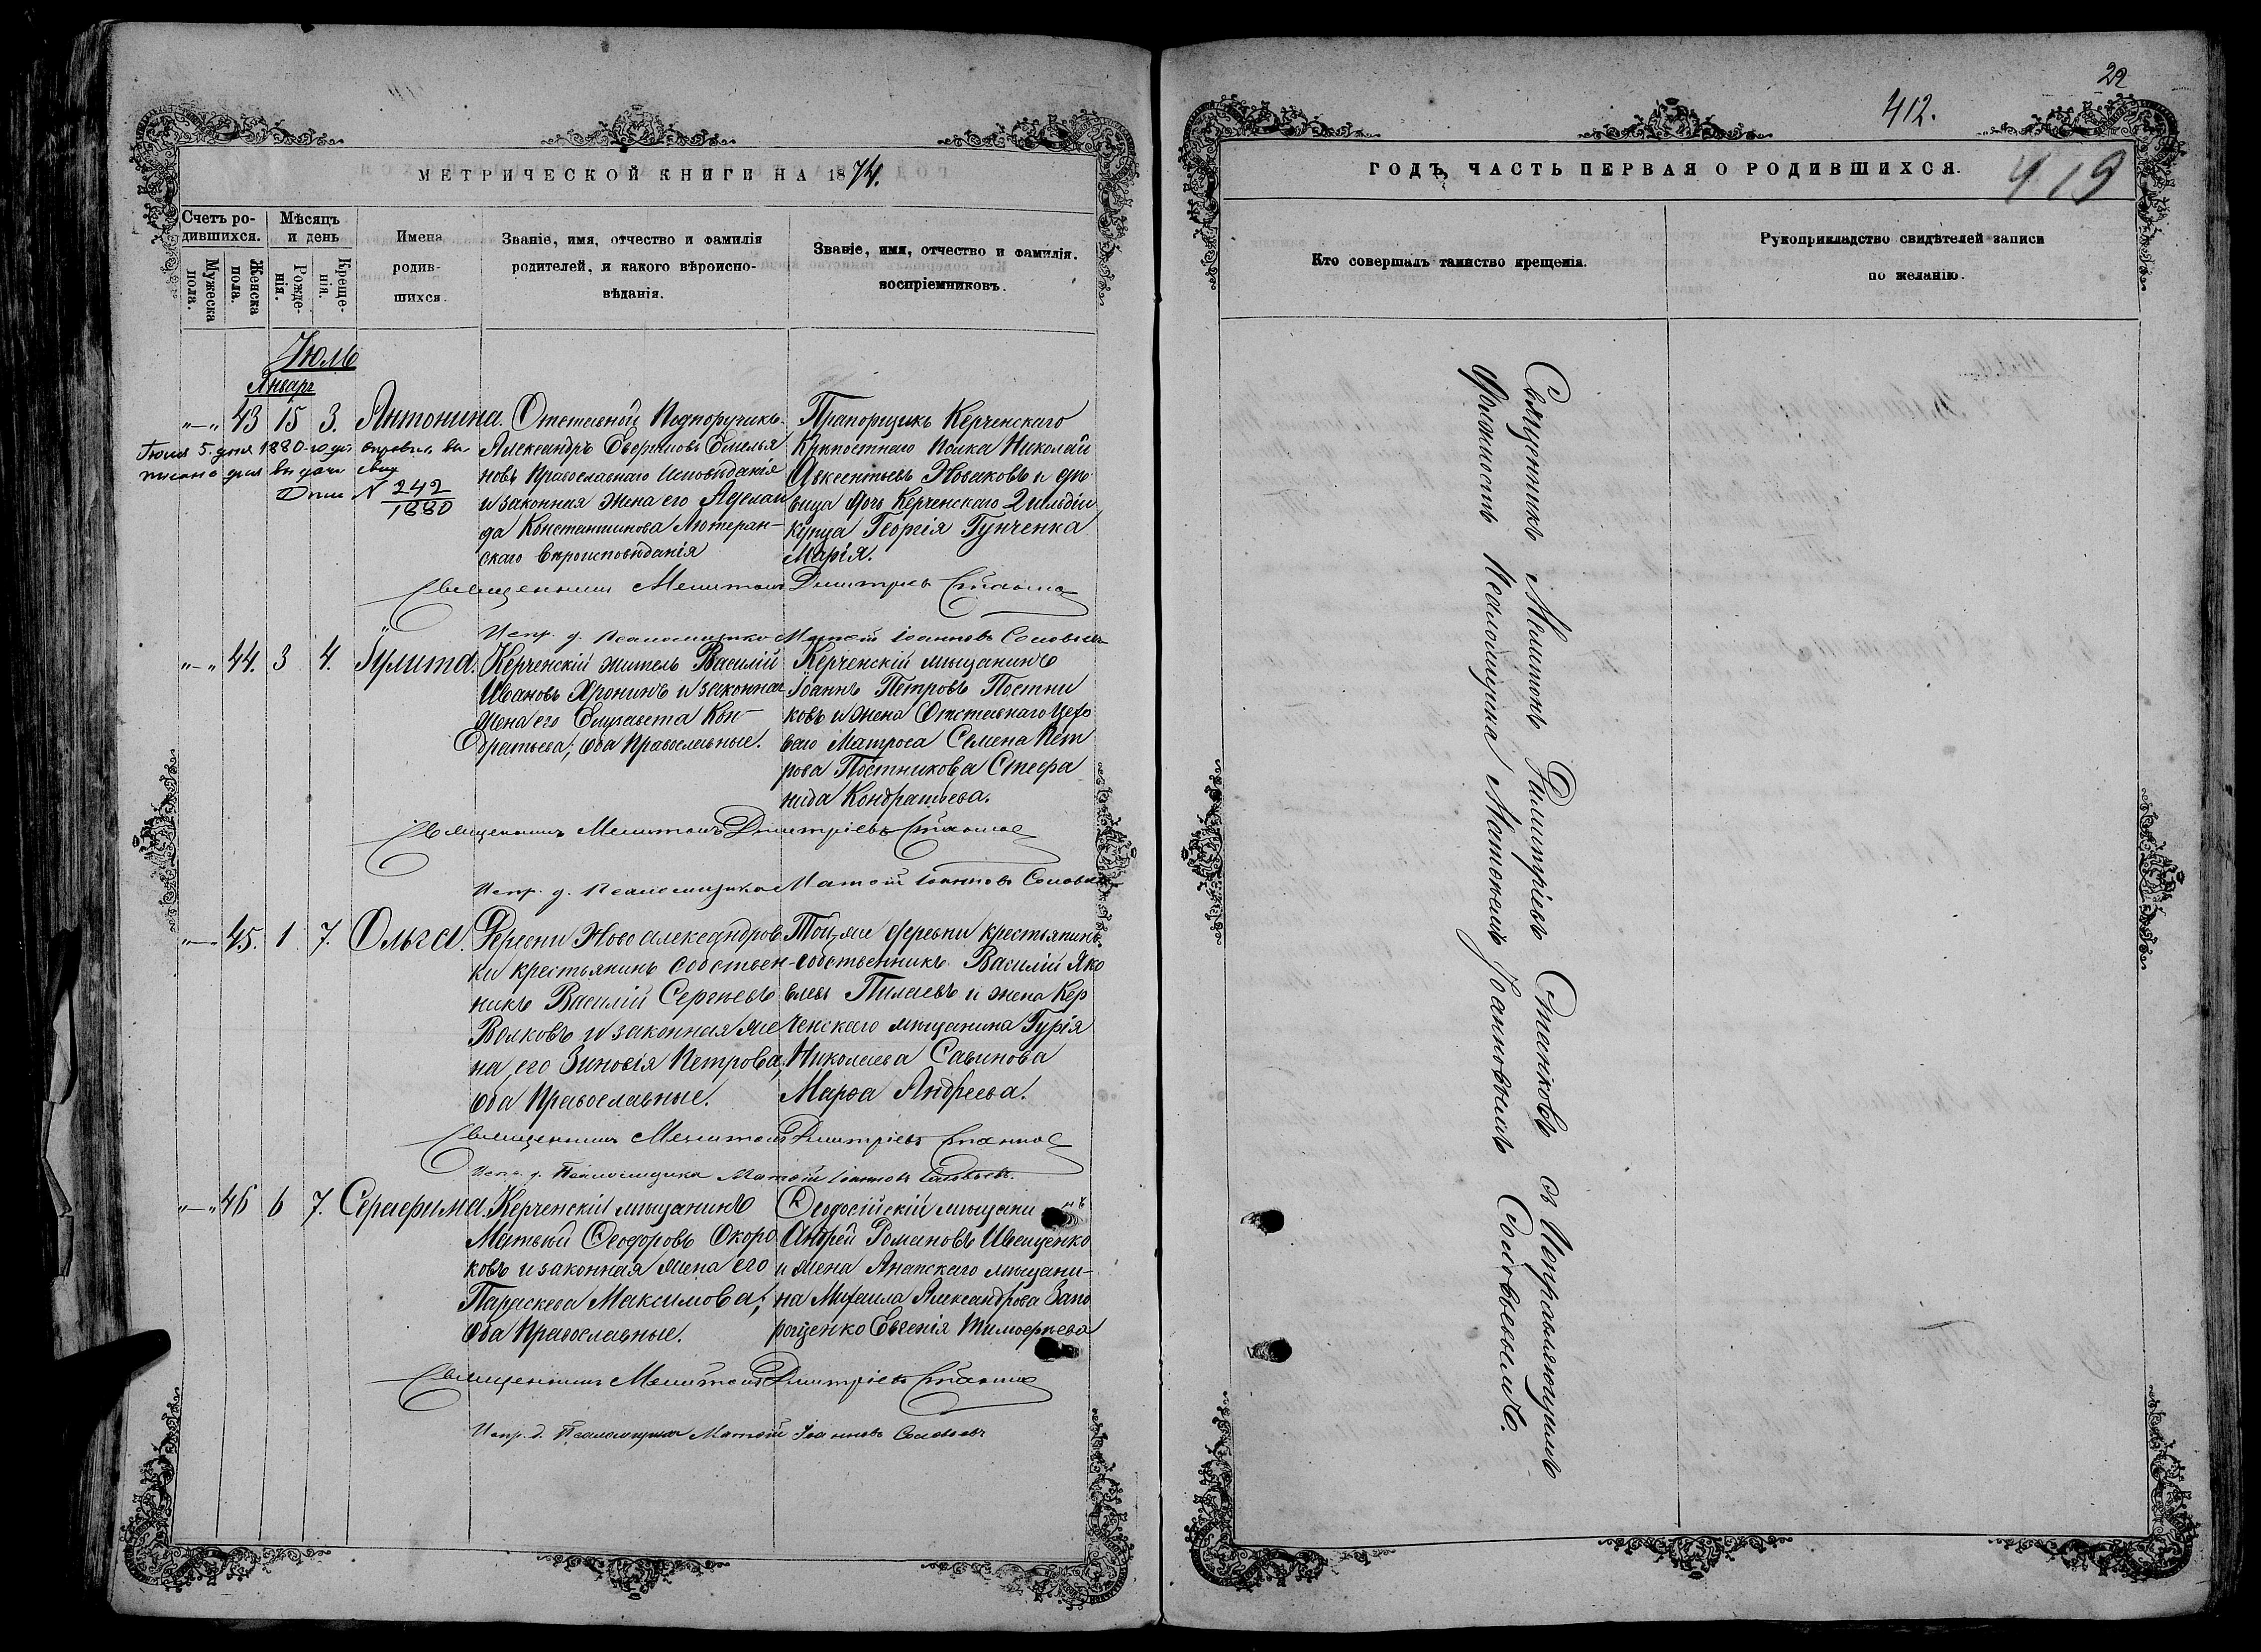 МЕТРИЧЕСКОЙ КНИГИ НА 1874.
Счетъ ро-
дившихся.
Мужеска
пола.
Женска
пола.
Мѣсяцъ
и день
Рожде-
нія.
Креще-
нія.
Имена
родив-
шихся.
Званіе, имя, отчество и фамилія
родителей, и какого вѣроиспо-
вѣданія.
Званіе, имя, отчество и фамилія.
воспріемниковъ.
Іюль
Январь
"—" 43 15 3. Антонина.
Іюля 5. дня 1880 года
для выдачи свид
N 242
1880
Отставной Подпоручикъ
Александръ Емелья
новъ Православнаго Исповѣданія
и законная жена его Аделаи
да Константинова Лютеран-
скаго Вѣроисповѣданія
Прапорщикъ Керченскаго
Крѣпостнаго Полка Николай
Авксентьевъ Новаковъ и дѣ
вица дочь Керченскаго 2 гильдіи
купца Георгія Гунченка
Марія.
Священникъ Мелитонъ Дмитріевъ Станковъ
Испр. д. Псаломщика Матѳій Іоанновъ Соловьевъ
"—" 44. 3 4. Іулита.
Керченскій житель Василій
Ивановъ Хронинъ и законная
жена его Елизавета Кон-
дратьева; оба Православные.
Керченскій мѣщанинъ
Іоаннъ Петровъ Постни
ковъ и жена Отставнаго
ваго Матроса Семена Пет
рова Постникова Стефа
нида Кондратьева.
Священникъ Мелитонъ Дмитріевъ Станковъ
Испр. д. Псаломщика Матѳій Іоанновъ Соловьевъ
"—" 45. 1 7. Ольга.
Деревни Ново александров
ки крестьянинъ собствен-
никъ Василій Сергѣевъ
Волковъ и законная же
на его Зиновія Петрова,
оба Православные.
Той же деревни крестьянинъ
собственникъ Василій Яко
влевъ Пилаевъ и жена Кер
ченскаго мѣщанина Гурія
Николаева Савинова
Марѳа Андреева.
Священникъ Мелитонъ Дмитріевъ Станковъ
Испр. д. Псаломщика Матѳій Іоанновъ Соловьевъ.
"—" 46 6 7. Серафима.
Керченскій мѣщанинъ
Матвѣй Ѳеодоровъ Окоро
ковъ и законная жена его
Параскева Максимова;
оба Православные.
Ѳеодосійскій мѣщани нъ
Андрей Романовъ Иващенко
и жена Анапскаго мѣщани-
на Михаила Александрова Запо
рощенко Евгенія Тимоѳеева
Священникъ Мелитонъ Дмитріевъ Станковъ
Испр. д. Псаломщика Матѳій Іоанновъ Соловьевъ
22
412.
419
ГОДЪ, ЧАСТЬ ПЕРВАЯ О РОДИВШИХСЯ.
Кто совершалъ таинство крещенія.
Рукоприкладство свидѣтелей записи
по желанію.
Священникъ Мелитонъ Димитріевъ Станковъ съ Исправляющимъ
должность Псаломщика Матѳеемъ Іоанновымъ Соловьевымъ.